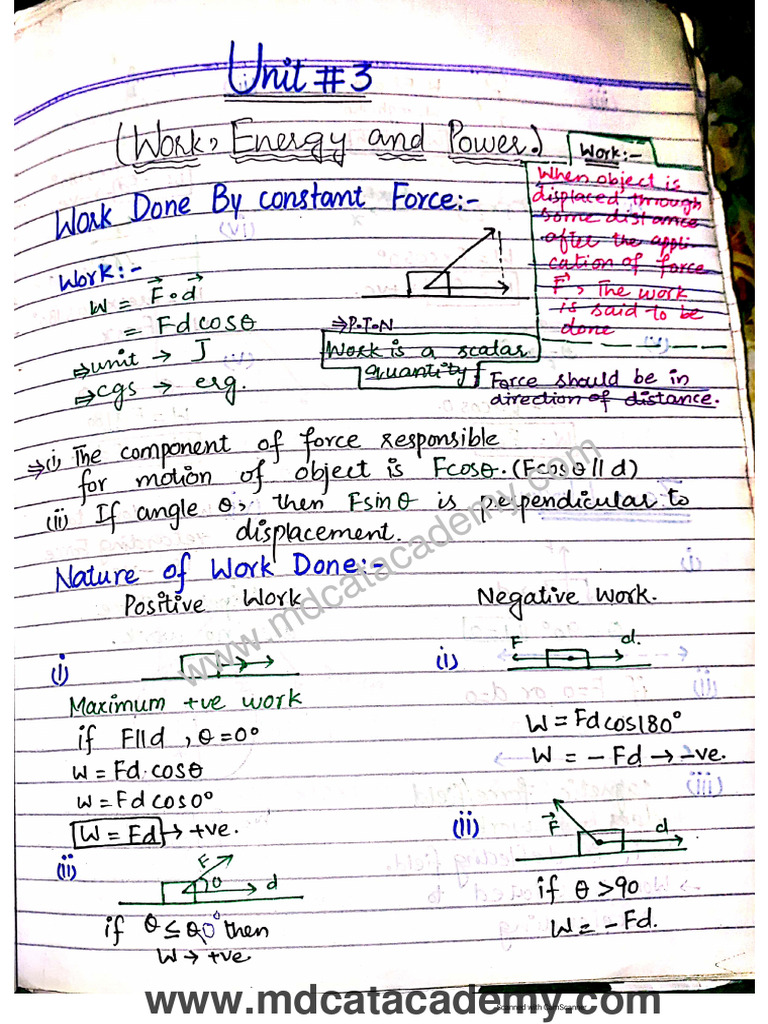 Unit # 3
(Work, Energy and Power.)
Work:-
When object is
displaced through
some distance
after the appli
cation of force
F⃗, The work
is said to be
done
Work Done By constant Force:-
Work:-
W = F⃗ ∘ d⃗
= Fd cosθ
⇒ unit → J
⇒ cgs → erg.
⇒ P.T.N
Work is a scalar
quantity
Force should be in
direction of distance.
⇒ (i) The component of force responsible
for motion of object is Fcosθ. (Fcosθ // d)
(ii) If angle θ, then Fsinθ is perpendicular to
displacement.
Nature of Work Done:-
Positive Work
(i)
Maximum +ve work
if F||d, θ = 0°
W = Fd. cosθ
W = Fd cos0°
W = Fd → +ve.
(ii)
F
θ
d
if θ ≤ 90° then
W → +ve
Negative Work.
(i)
F
d.
W = Fd cos180°
W = - Fd → -ve.
(ii)
F⃗
d
if θ > 90
W = - Fd.
www.mdcatacademy.com
www.mdcatacademy.com
Scanned with CamScanner